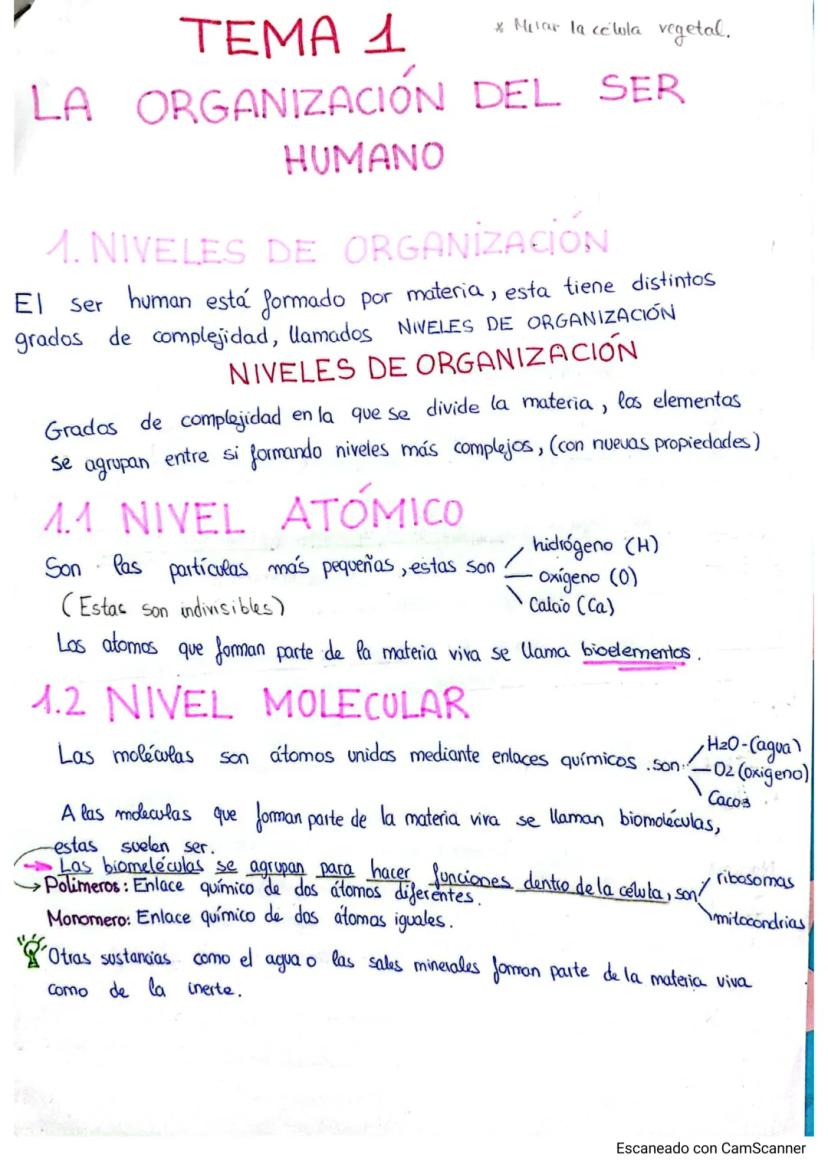 TEMA 1
* Mirar la célula vegetal.
LA ORGANIZACIÓN DEL SER
HUMANO
1. NIVELES DE ORGANIZACIÓN
El ser human está formado por materia, esta tiene distintos
grados de complejidad, llamados NIVELES DE ORGANIZACIÓN
NIVELES DE ORGANIZACIÓN
Grados de complejidad en la que se divide la materia, los elementos
se agrupan entre si formando niveles más complejos, (con nuevas propiedades)
1.1 NIVEL ATÓMICO
Son las partículas más pequeñas, estas son
hidrógeno (H)
oxígeno (O)
Calcio (Ca)
(Estas son indivisibles)
Los atomos que forman parte de la materia viva se llama bioelementos.
1.2 NIVEL MOLECULAR
Las moléculas son átomos unidos mediante enlaces químicos. son:
H2O-(agua)
O2 (oxigeno)
Caco3
A las moleculas que forman parte de la materia viva se llaman biomoléculas,
estas suelen ser.
Las biomeléculas se agrupan para hacer funciones dentro de la célula, son
ribosomas
mitocondrias
Polimeros: Enlace químico de dos átomos diferentes.
Monomero: Enlace químico de dos átomos iguales.
Otras sustancias como el agua o las sales minerales forman parte de la materia viva
como de la inerte.
Escaneado con CamScanner